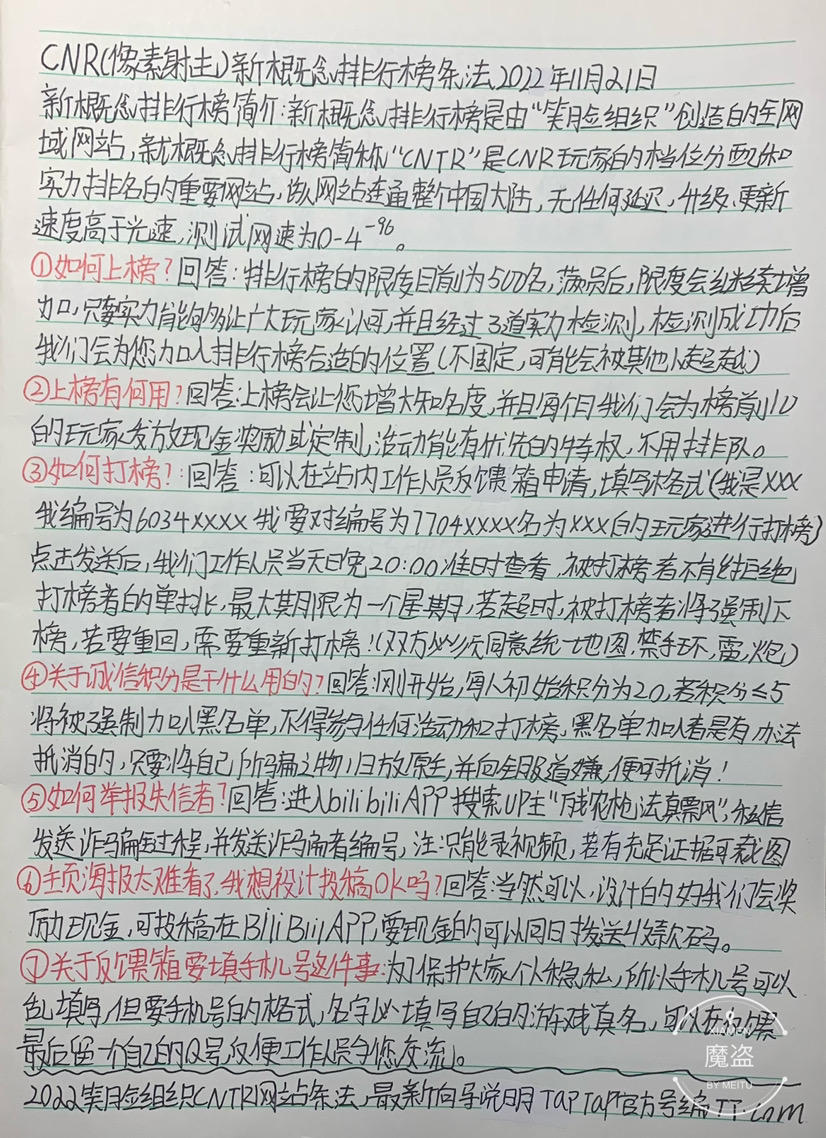 CNR(像素射击)新概念排行榜条法2022年11月21日
新概念排行榜简介:新概念排行榜是由“笑脸组织”创造的全网
域网站,新概念排行榜简称“CNTR”是CNR玩家的档位分配和
实力排名的重要网站,该网站连通整个中国大陆,无任何延迟,升级、更新
速度高于光速,测试网速为0-4⁻⁹⁶。
①如何上榜?回答:排行榜的限度目前为500名,满员后,限度会继续增
加,只要实力能够让广大玩家认可,并且经过3道实力检测,检测成功后
我们会为您加入排行榜合适的位置(不固定,可能会被其他人超越)
②上榜有何用?回答:上榜会让您增大知名度,并且每个月我们会为榜前10
的玩家发放现金奖励或定制,活动能有优先的特权,不用排队。
③如何打榜?:回答:可以在站内工作人员反馈箱申请,填写格式(我是XXX
我编号为6034XXXX我要对编号为7704XXXX名为XXX的玩家进行打榜)
点击发送后,我们工作人员当天晚20:00准时查看,被打榜者不能拒绝
打榜者的单挑,最大期限为一个星期,若超时,被打榜者将强制下
榜,若要重回,需要重新打榜!(双方必须同意统一地图,禁手环,雷,炮)
④关于诚信积分是干什么用的?回答:刚开始,每人初始积分为20,若积分≤5
将被强制加入黑名单,不得参与任何活动和打榜,黑名单加入者是有办法
抵消的,只要将自己所骗之物归放原主,并向全服道歉,便可抵消!
⑤如何举报失信者?回答:进入bilibiliAPP搜索UP主“枪法真飘”,私信
发送诈骗全过程,并发送诈骗者编号,注:只能录视频,若有充足证据可截图
⑥主页海报太难看了,我想设计投稿OK吗?回答:当然可以,设计的好我们会奖
励现金,可投稿在BiliBiliAPP,要现金的可以同日拨送收款码。
⑦关于反馈箱要填手机号这件事:为了保护大家个人隐私,所以手机号可以
乱填写,但要手机号的格式,名字必填写自己的游戏真名,可以在反馈
最后留一个自己的Q号,仅便工作人员与您交流)。
2022笑脸组织CNTR网站条法,最新向导说明TAPTAP官方号编TT.com
魔盗
BY MEITU